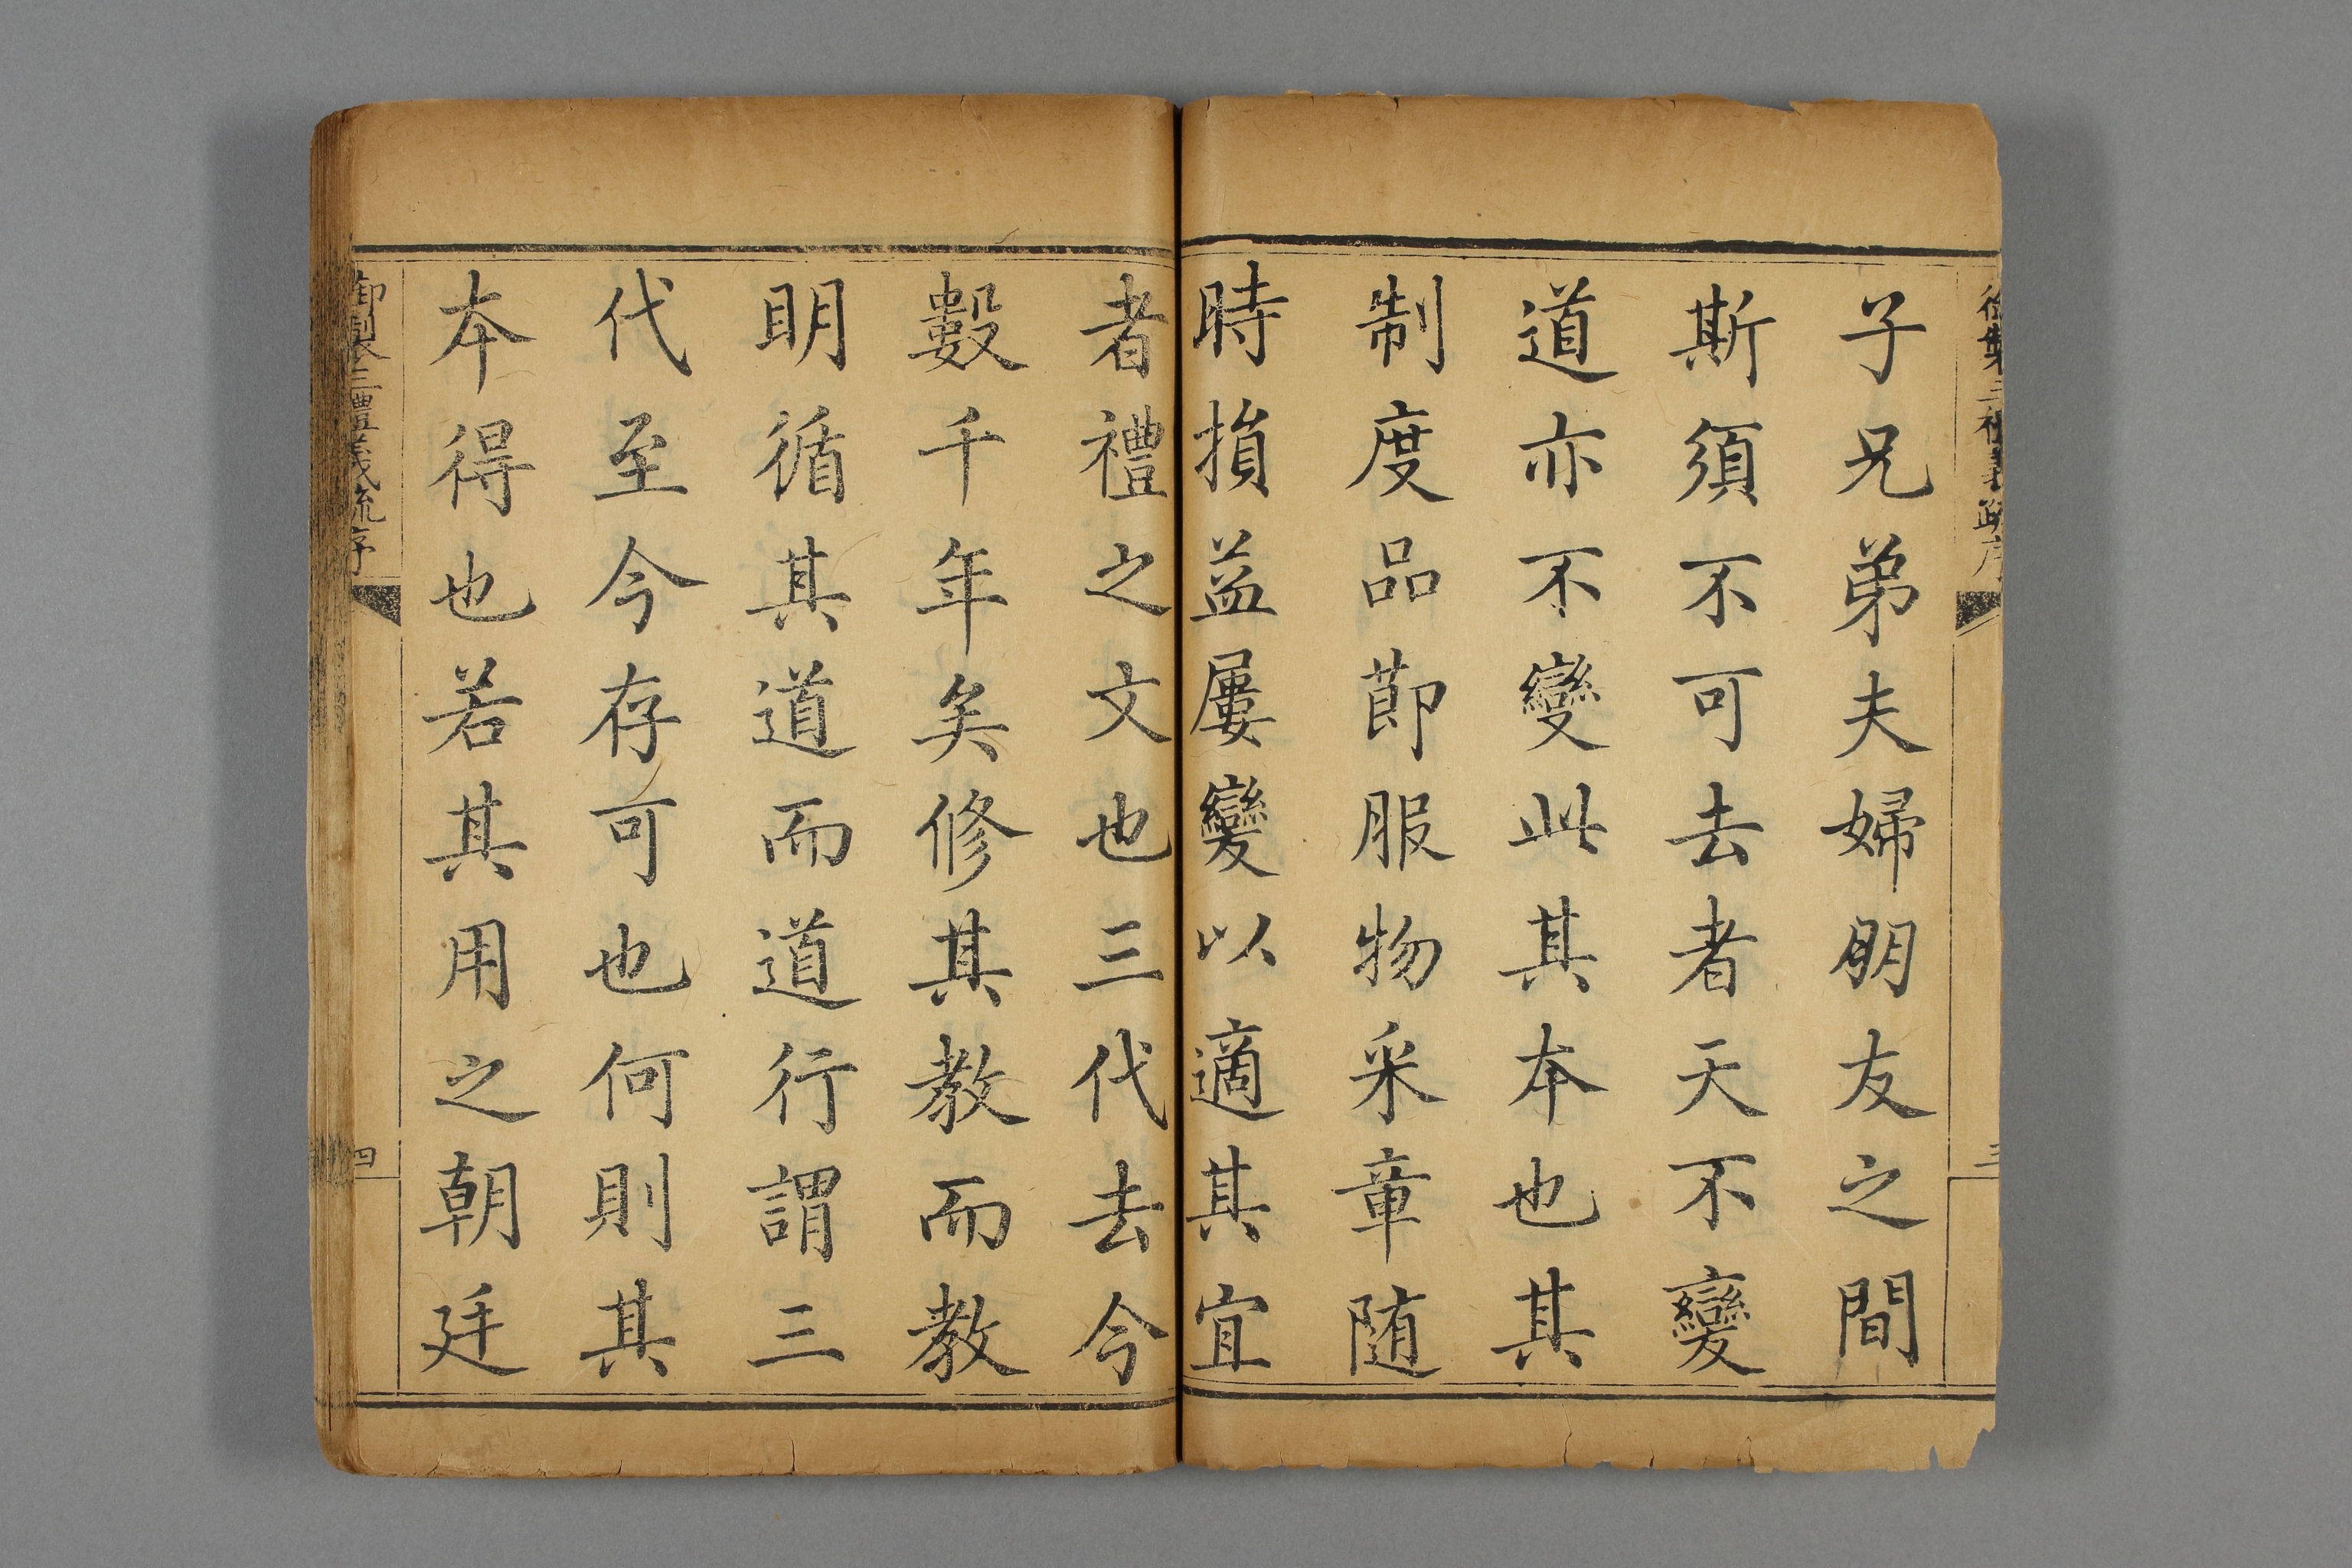 子兄弟夫婦朋友之間
斯須不可去者天不變
道亦不變此其本也其
制度品節服物采章随
時損益屢變以適其宜
者禮之文也三代去今
數千年矣修其教而教
明循其道而道行謂三
代至今存可也何則其
本得也若其用之朝廷
御製三禮義疏序
四